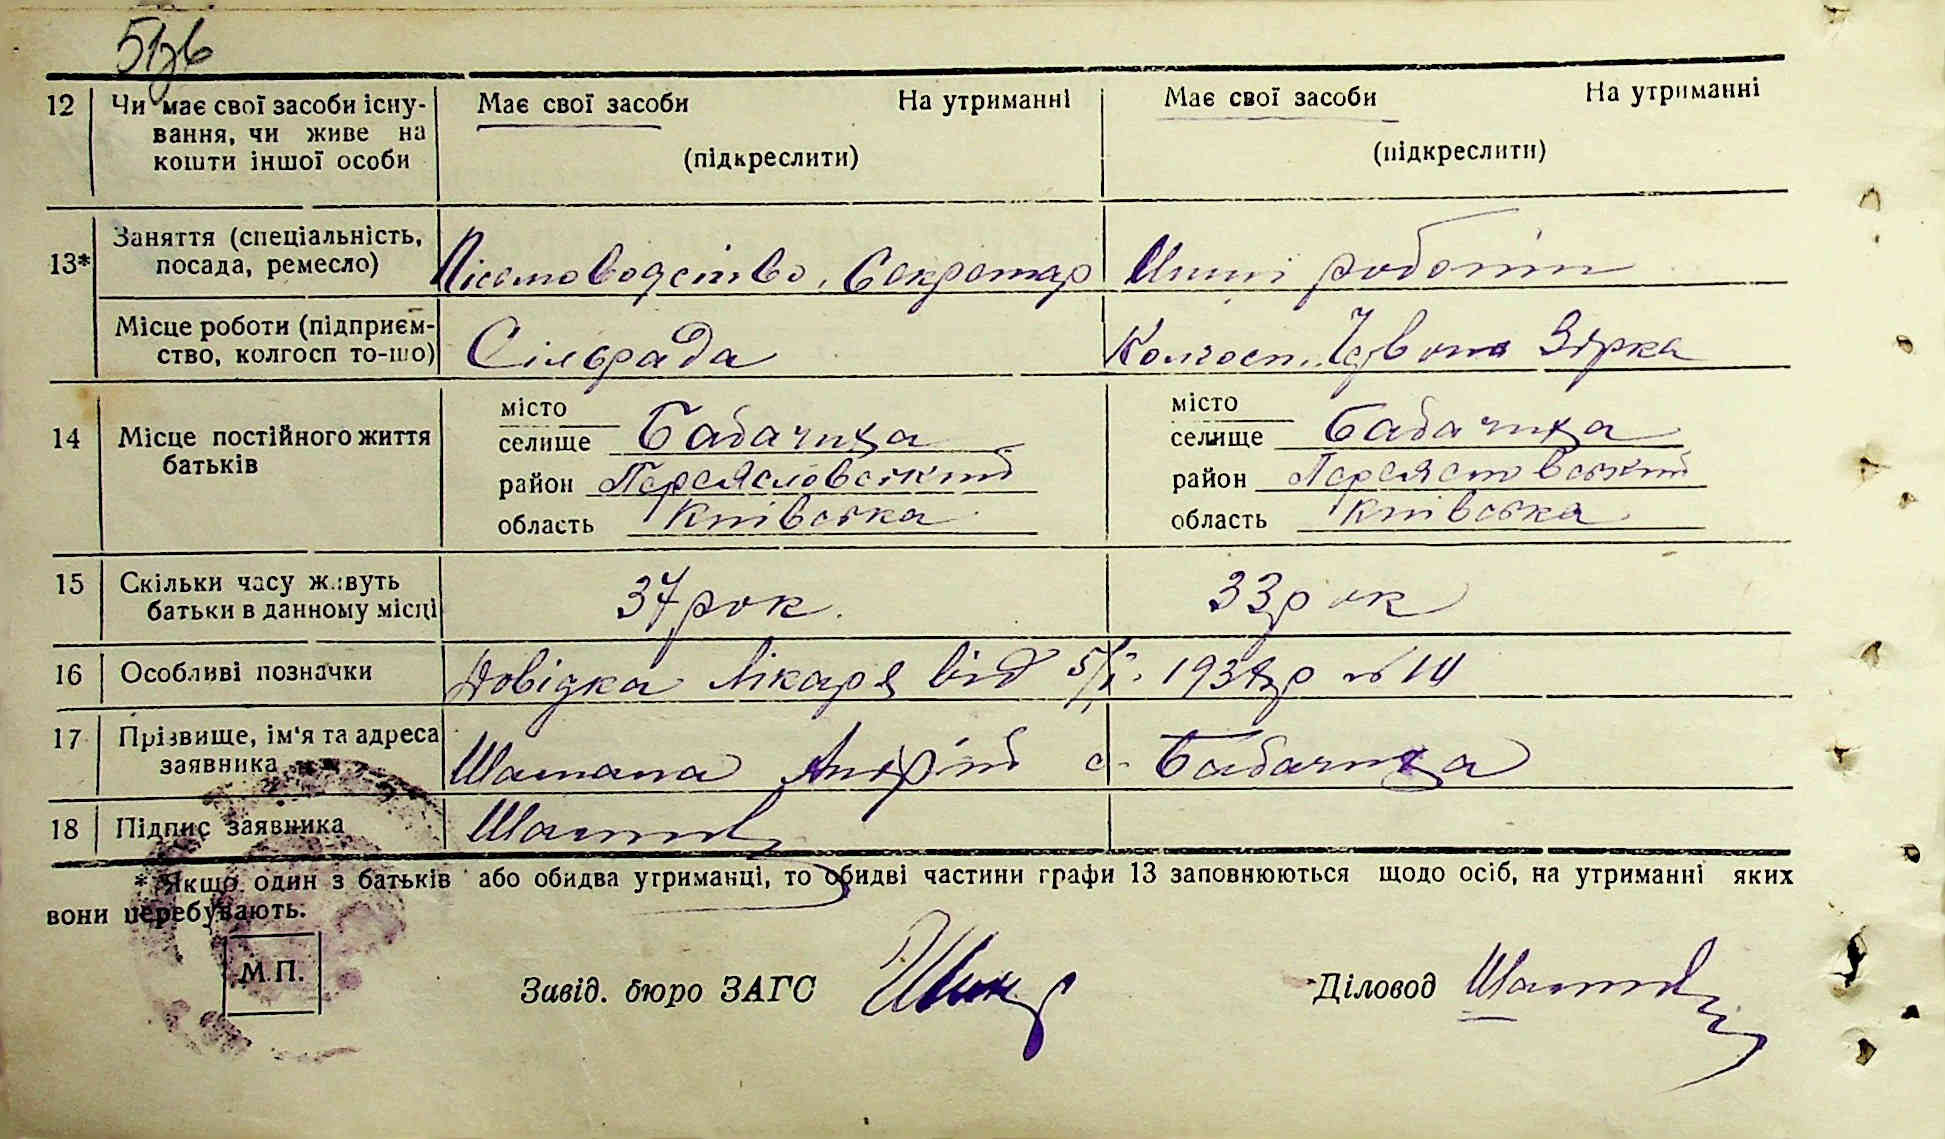 51зв
12 Чи має свої засоби існу- Має свої засоби На утриманні Має свої засоби На утриманні
вання, чи живе на
кошти іншої особи (підкреслити) (підкреслити)
13* Заняття (спеціальність, посада, ремесло) Пісьмоводство, Секретар Инші роботи
Місце роботи (підприєм-
ство, колгосп то-що) Сільрада Колгосп. Червона Зірка
14 Місце постійного життя батьків
місто місто
селище Бабачиха селище Бабачиха
район Переясловський район Переясловський
область Київська область Київська
15 Скільки часу живуть
батьки в данному місці 37 рок. 33 рок
16 Особливі позначки Довідка лікаря від 193 р № 14
17 Прізвище, ім'я та адреса
заявника Шамана Андрій с. Бабачиха
18 Підпис заявника
* Якщо один з батьків або обидва утриманці, то обидві частини графи 13 заповнюються щодо осіб, на утриманні яких
вони перебувають.
М.П.
Завід. бюро ЗАГС Діловод